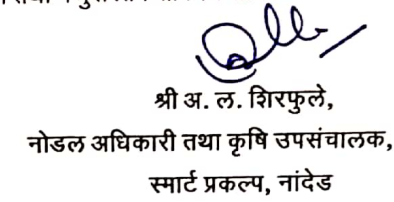 श्री अ. ल. शिरफुले,
नोडल अधिकारी तथा कृषि उपसंचालक,
स्मार्ट प्रकल्प, नांदेड